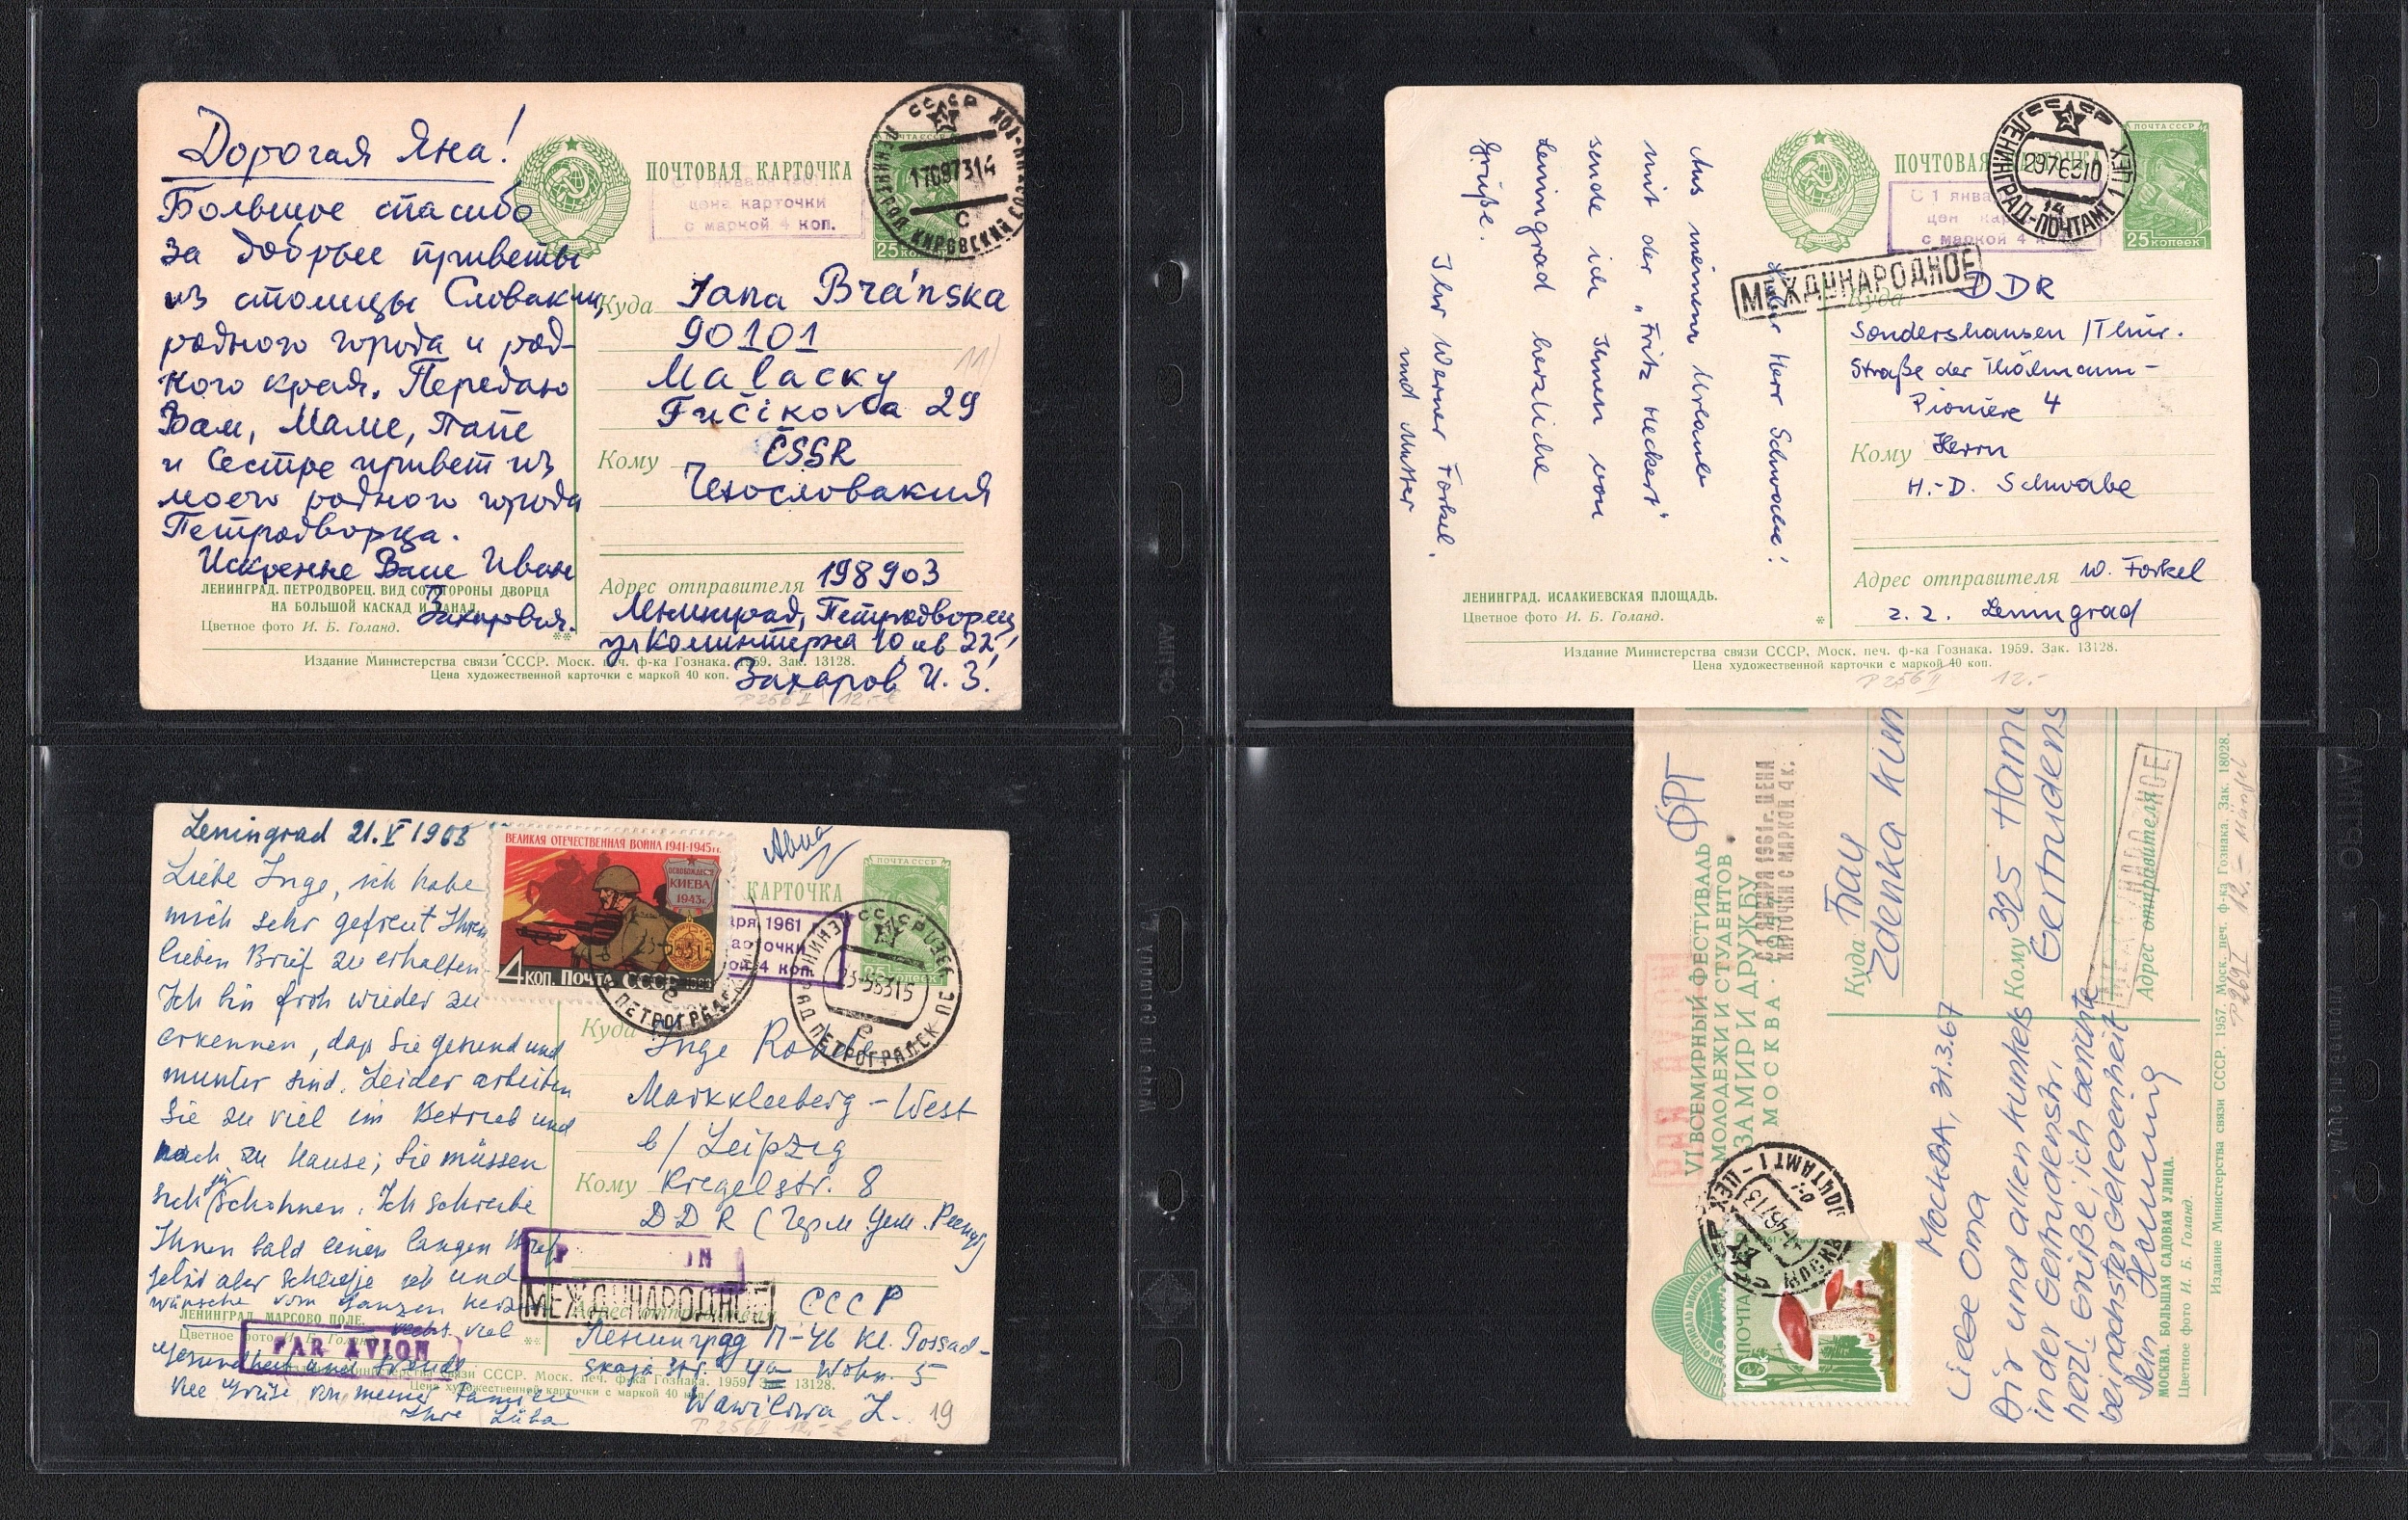 Дорогая Яна!
Большое спасибо
за добрые приветы
из столицы Словакии,
родного города и род-
ного края. Передаю
Вам, Маме, Папе
и Сестре привет из
моего родного города
Петродворца.
Искренне Ваш Иван
Захарович.
ЛЕНИНГРАД. ПЕТРОДВОРЕЦ. ВИД СО СТОРОНЫ ДВОРЦА
НА БОЛЬШОЙ КАСКАД И КАНАЛ.
Цветное фото И. Б. Голанд.
**
ПОЧТОВАЯ КАРТОЧКА
С 1 января 1961 г.
цена карточки
с маркой 4 коп.
ПОЧТА СССР
25 копеек
СССР
ЛЕНИНГРАД КИРОВСКИЙ
170897314
С
Куда Jana Bránska
90101
Malacky
Fučíkova 29
11)
Кому ČSSR
Чехословакия
Адрес отправителя 198903
Ленинград, Петродворец,
ул Коминтерна 10 кв 22,
Захаров И. З.
Издание Министерства связи СССР. Моск. печ. ф-ка Гознака. 1959. Зак. 13128.
Цена художественной карточки с маркой 40 коп.
P 256 II 12,- €
ПОЧТОВАЯ КАРТОЧКА
С 1 янва
цен ка
с маркой 4 к
ПОЧТА СССР
25 копеек
СССР
ЛЕНИНГРАД-ПОЧТАМТ 1 ЦЕХ
2976310
14
МЕЖДУНАРОДНОЕ
Lieber Herr Schwabe!
Aus meinem Urlaub
mit der „Fritz Heckert"
sende ich Ihnen von
Leningrad herzliche
Grüße.
Ihr Werner Forkel.
und Mutter
Куда DDR
Sondershausen /Thür.
Straße der Thälmann-
Pioniere 4
Кому Herrn
H.-D. Schwabe
Адрес отправителя W. Forkel
z. Z. Leningrad
ЛЕНИНГРАД. ИСААКИЕВСКАЯ ПЛОЩАДЬ.
Цветное фото И. Б. Голанд.
*
Издание Министерства связи СССР. Моск. печ. ф-ка Гознака. 1959. Зак. 13128.
Цена художественной карточки с маркой 40 коп.
P 256 II 12.-
Leningrad 21. V 1963
Liebe Inge, ich habe
mich sehr gefreut Ihren
lieben Brief zu erhalten.
Ich bin froh wieder zu
erkennen, daß Sie gesund und
munter sind. Leider arbeiten
Sie zu viel im Betrieb und
nach zu Hause; Sie müssen
sich ja schohnen. Ich schreibe
Ihnen bald einen langen Brief
jetzt aber schließe ich und
wünsche vom ganzen Herzen
recht viel
Gesundheit und Freude
Viele Grüße von meiner Familie
Ihre Luba
ЛЕНИНГРАД. МАРСОВО ПОЛЕ.
Цветное фото И. Б. Голанд.
**
PAR AVION
ВЕЛИКАЯ ОТЕЧЕСТВЕННАЯ ВОЙНА 1941-1945 гг.
ОСВОБОЖДЕНИЕ
КИЕВА
1943 г.
4 КОП. ПОЧТА СССР 1963
Авиа
КАРТОЧКА
ПОЧТА СССР
25 копеек
аря 1961
арточки
ой 4 коп.
СССР
ЛЕНИНГРАД ПЕТРОГРАДСК
23-56315
С
ПЕТРОГРАДСК
Куда Inge Robell
Markkleeberg - West
b/ Leipzig
Кому Riegelstr. 8
DDR (Герм. Дем. Респуб)
P N
МЕЖДУНАРОДНОЕ
Адрес отправителя СССР
Ленинград П-46 Kl. Possad-
skaja Str. 4a Wohn. 5
Wawilowa L.
19
Издание Министерства связи СССР. Моск. печ. ф-ка Гознака. 1959. Зак. 13128.
Цена художественной карточки с маркой 40 коп.
P 256 II 12,- €
ФРГ
PAR AVION
VI ВСЕМИРНЫЙ ФЕСТИВАЛЬ
МОЛОДЕЖИ И СТУДЕНТОВ
ЗА МИР И ДРУЖБУ
МОСКВА · 1957
С 1 ЯНВАРЯ 1961 г. ЦЕНА
КАРТОЧКИ С МАРКОЙ 4 к.
ПОЧТА
10 к
ПОЧТАМТ 1 - ЦЕХ
Куда Frau
Zdenka Kun
Кому 325 Ham
Gertrudens
Адрес отправителя
МЕЖДУНАРОДНОЕ
Москва, 31.3.67
Liebe Oma
Dir und allen Kunkels
in der Gertrudenstr.
herzl. Grüße, ich berichte
bei nächster Gelegenheit
Dein Henning
МОСКВА. БОЛЬШАЯ САДОВАЯ УЛИЦА.
Цветное фото И. Б. Голанд.
Издание Министерства связи СССР. 1957. Моск. печ. ф-ка Гознака. Зак. 18028.
P 269 I 12.-